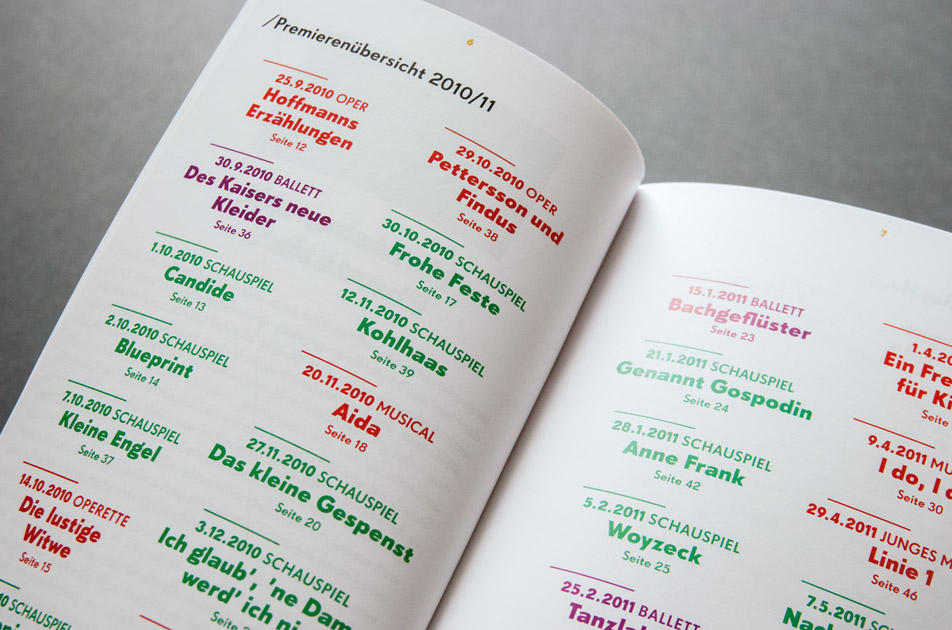 6
/Premierenübersicht 2010/11
25.9.2010 OPER
Hoffmanns
Erzählungen
Seite 12
30.9.2010 BALLETT
Des Kaisers neue
Kleider
Seite 36
1.10.2010 SCHAUSPIEL
Candide
Seite 13
2.10.2010 SCHAUSPIEL
Blueprint
Seite 14
7.10.2010 SCHAUSPIEL
Kleine Engel
Seite 37
14.10.2010 OPERETTE
Die lustige
Witwe
Seite 15
SCHAUSPIEL
29.10.2010 OPER
Pettersson und
Findus
Seite 38
30.10.2010 SCHAUSPIEL
Frohe Feste
Seite 17
12.11.2010 SCHAUSPIEL
Kohlhaas
Seite 39
20.11.2010 MUSICAL
Aida
Seite 18
27.11.2010 SCHAUSPIEL
Das kleine Gespenst
Seite 20
3.12.2010 SCHAUSPIEL
Ich glaub', 'ne Dam
werd' ich ni
7
15.1.2011 BALLETT
Bachgeflüster
Seite 23
21.1.2011 SCHAUSPIEL
Genannt Gospodin
Seite 24
28.1.2011 SCHAUSPIEL
Anne Frank
Seite 42
5.2.2011 SCHAUSPIEL
Woyzeck
Seite 25
25.2.2011 BALLETT
Tanzla
1.4.
Ein Fre
für Ki
Seite
9.4.2011 MU
I do, I d
Seite 30
29.4.2011 JUNGES M
Linie 1
Seite 46
7.5.2011 SCHAU
Nac